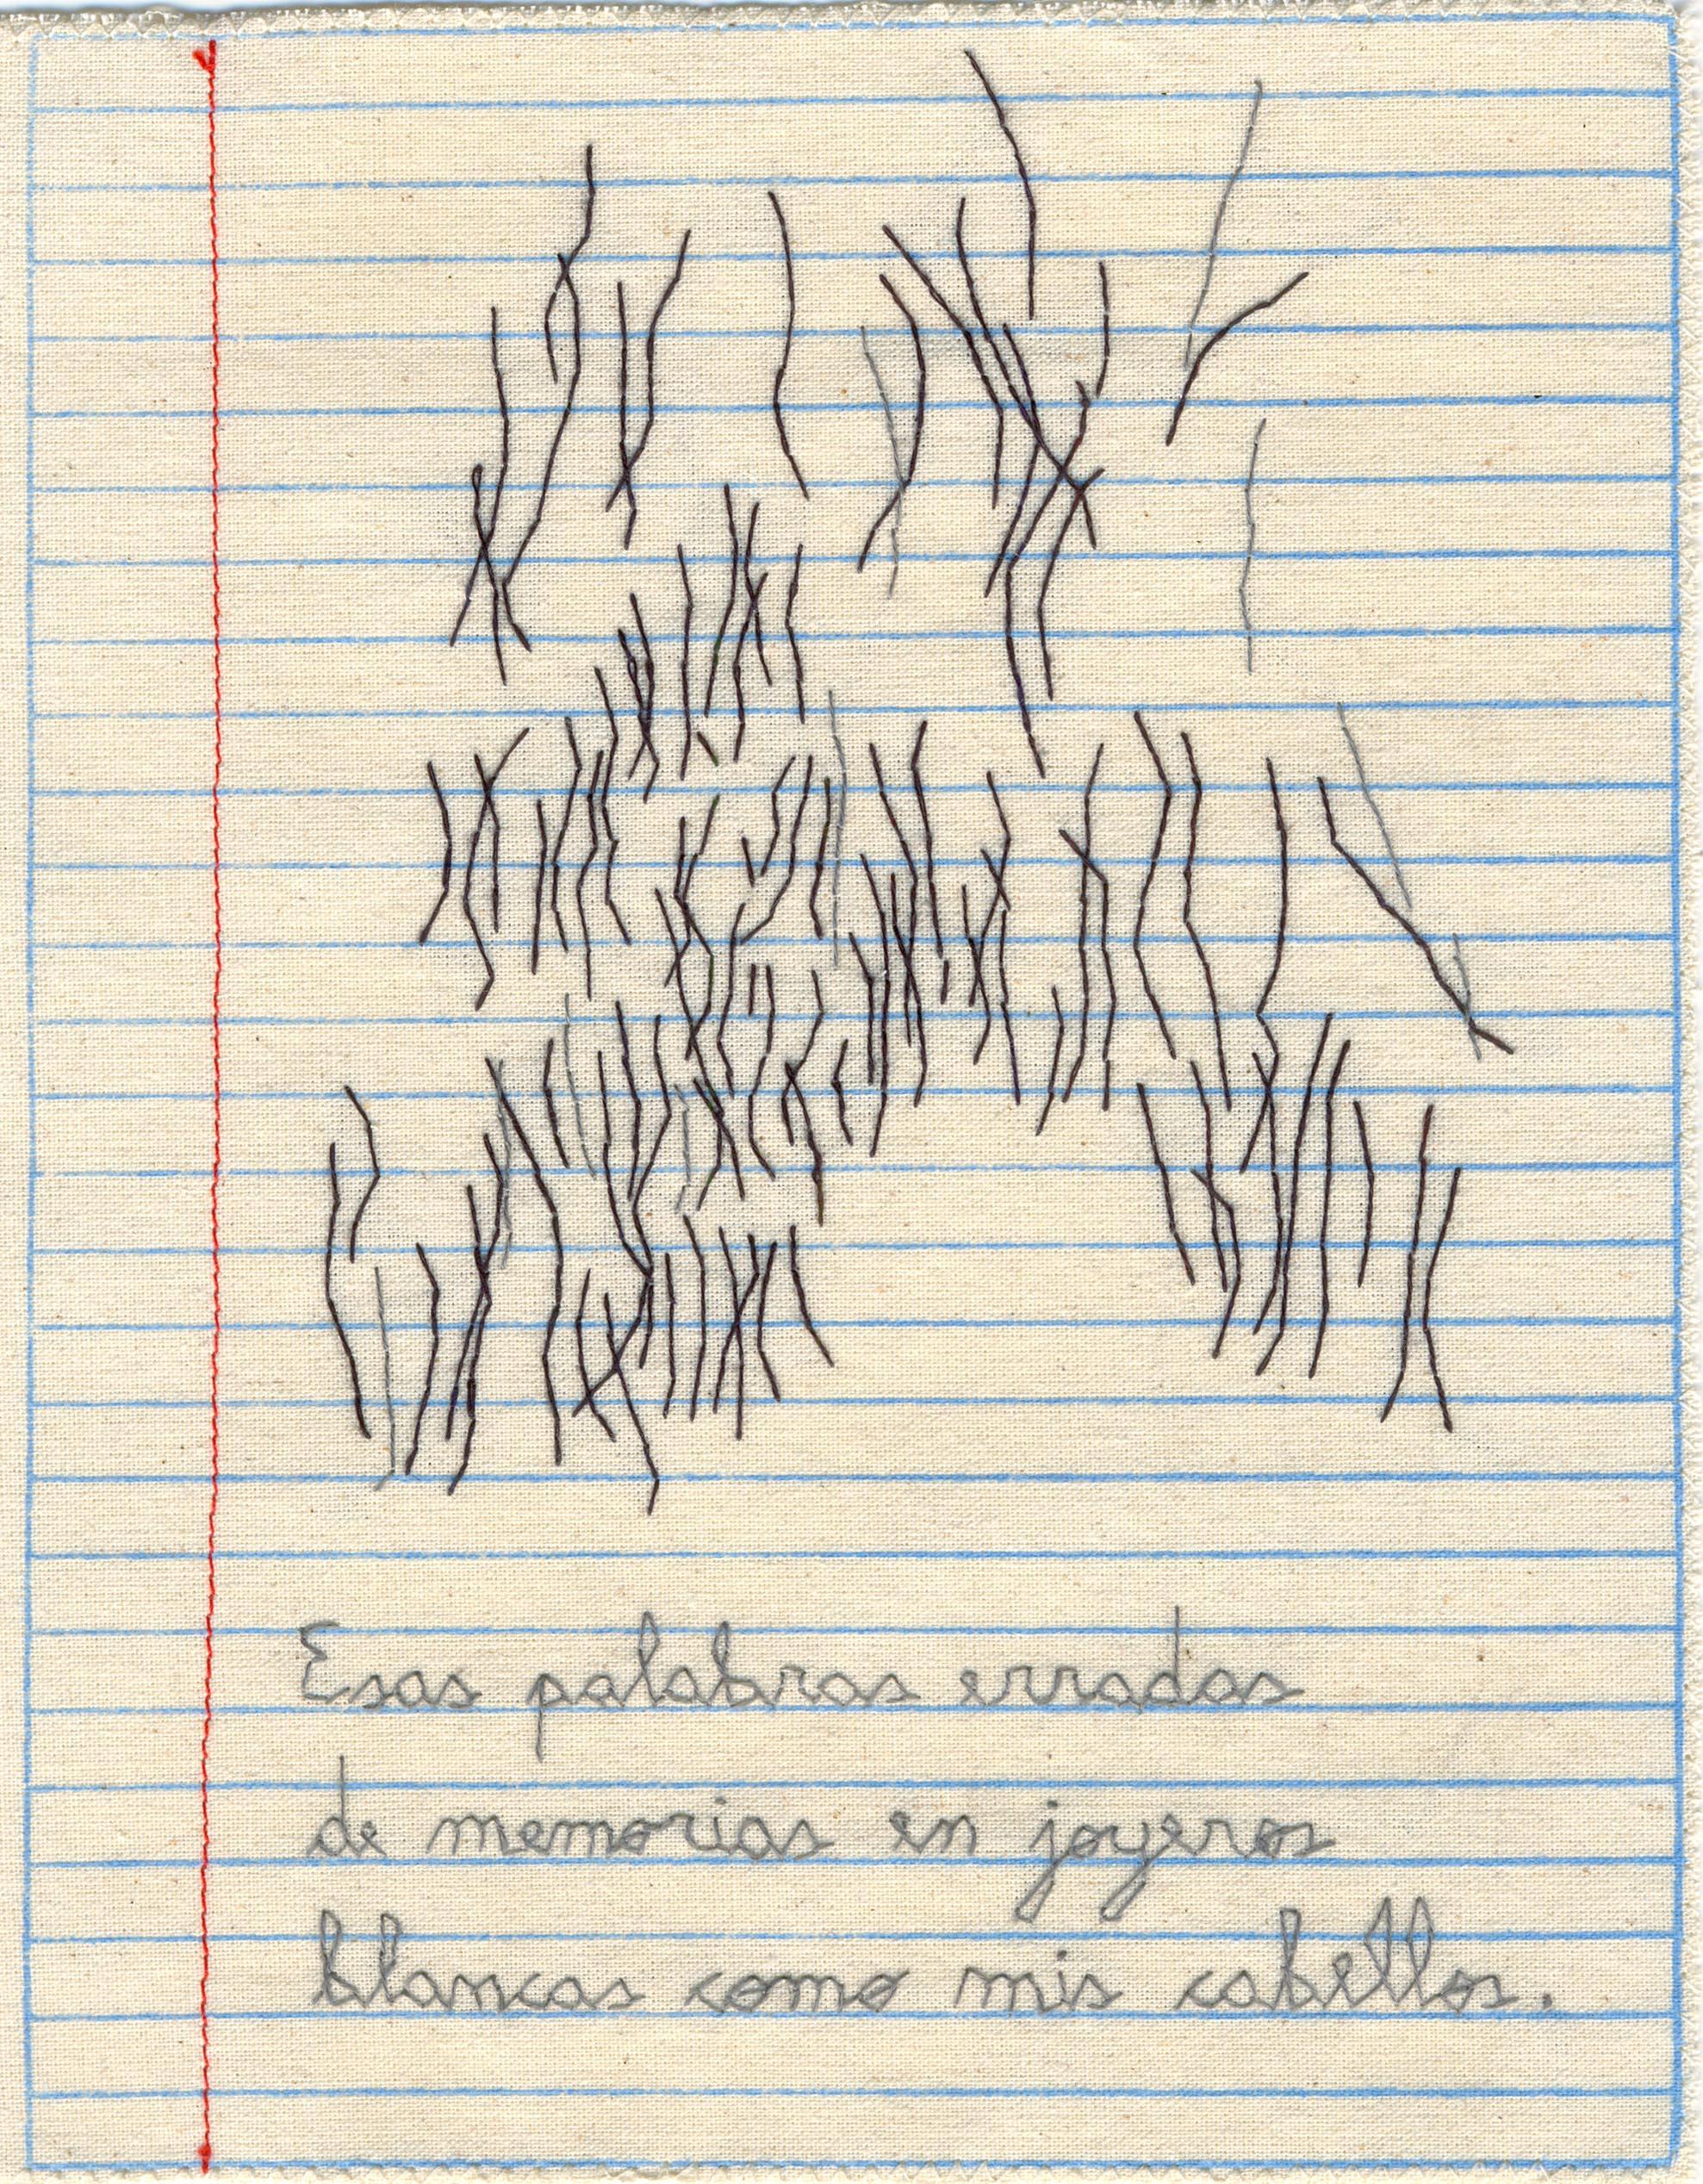 Esas palabras erradas
de memorias en joyeros
blancas como mis cabellos.